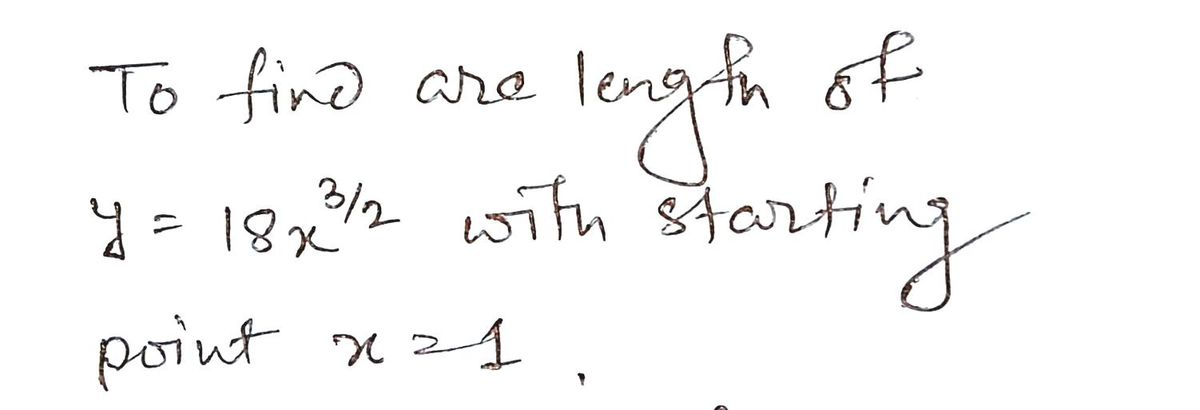 To find arc length of
y = 18x^{3/2} with starting
point x = 1.